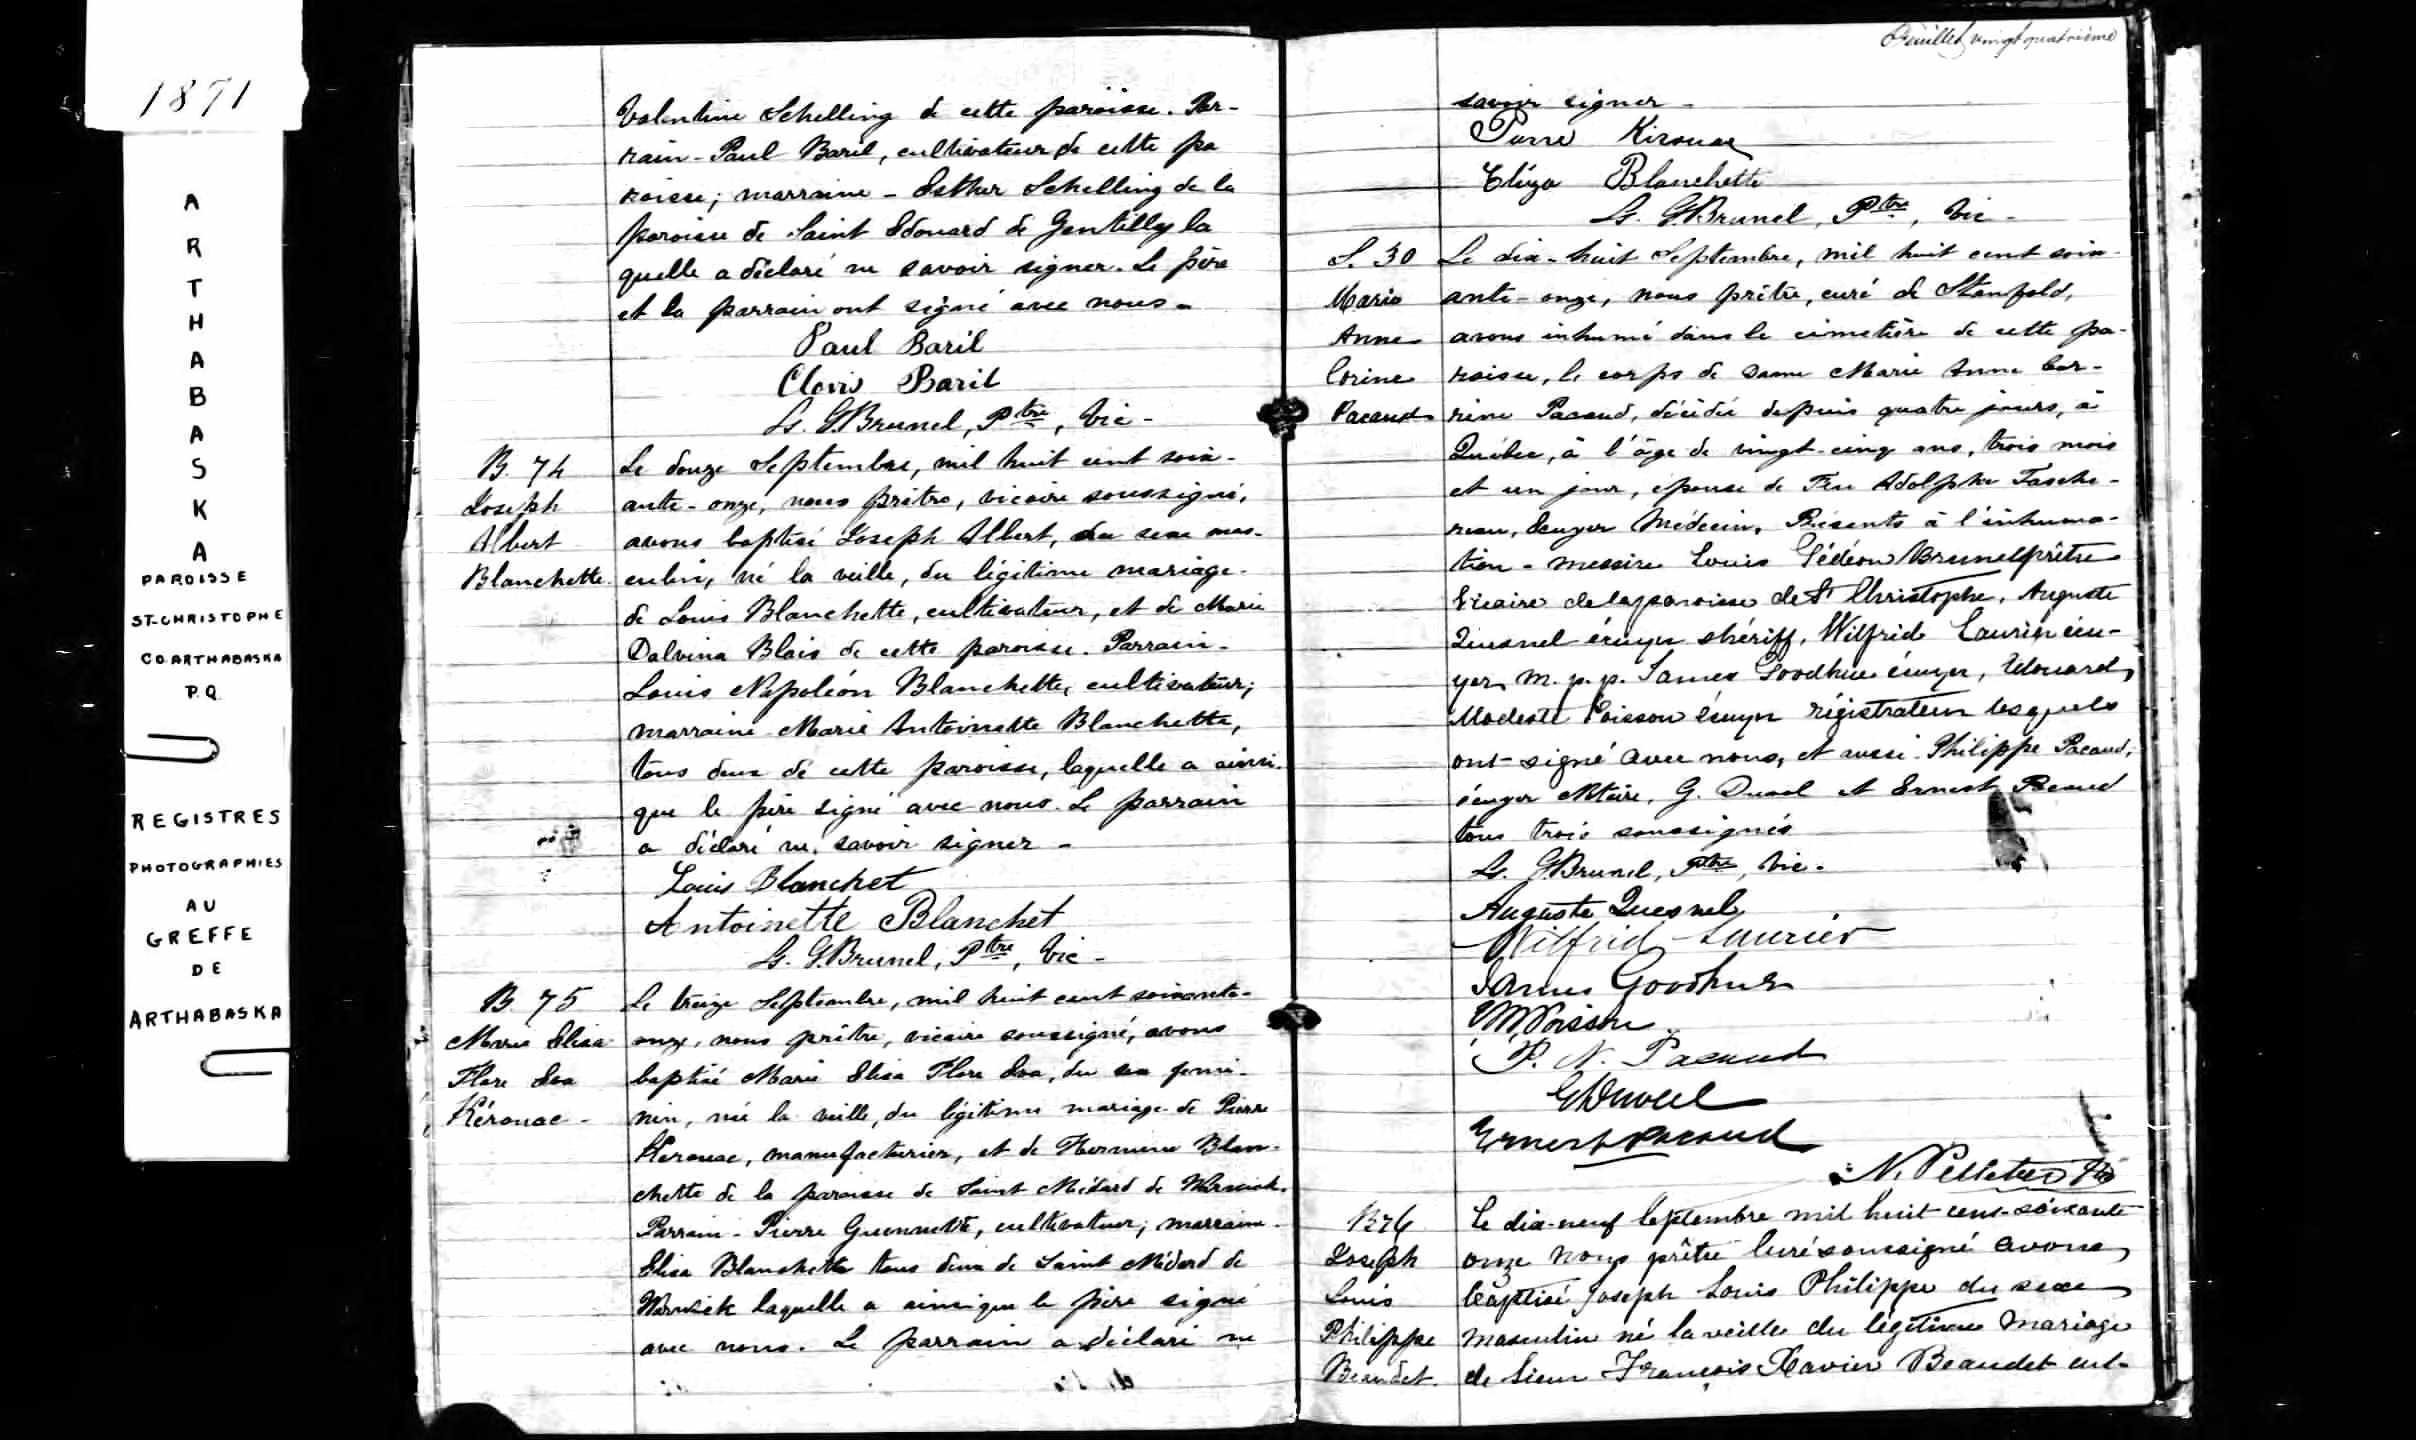 1871
ARTHABASKA
PAROISSE
ST-CHRISTOPHE
CO ARTHABASKA
P.Q.
REGISTRES
PHOTOGRAPHIES
AU
GREFFE
DE
ARTHABASKA
Valentine Schelling de cette paroisse. Par-
rain - Paul Baril, cultivateur de cette pa
roisse; marraine - Esther Schelling de la
paroisse de Saint Edouard de Gentilly la
quelle a déclaré ne savoir signer. Le père
et le parrain ont signé avec nous -
Paul Baril
Clovis Baril
Ls. G. Brunel, Ptre, Vic -
B. 74
Joseph
Albert
Blanchette
Le douze Septembre, mil huit cent soix-
ante-onze, nous prêtre, vicaire soussigné,
avons baptisé Joseph Albert, du sexe mas-
culin, né la veille, du légitime mariage
de Louis Blanchette, cultivateur, et de Marie
Dalvina Blais de cette paroisse. Parrain -
Louis Napoléon Blanchette, cultivateur;
marraine Marie Antoinette Blanchette,
tous deux de cette paroisse, laquelle a ainsi
que le père signé avec nous. Le parrain
a déclaré ne savoir signer -
Louis Blanchet
Antoinette Blanchet
Ls. G. Brunel, Ptre, Vic -
B. 75
Marie Elisa
Flore Eva
Kérouac -
Le treize Septembre, mil huit cent soixante-
onze, nous prêtre, vicaire soussigné, avons
baptisé Marie Elisa Flore Eva, du sexe fémi-
nin, née la veille, du légitime mariage de Pierre
Kerouac, manufacturier, et de Hermine Blan-
chette de la paroisse de Saint Médard de Warwick.
Parrain - Pierre Guennette, cultivateur; marraine -
Elisa Blanchette tous deux de Saint Médard de
Warwick laquelle a ainsi que le père signé
avec nous. Le parrain a déclaré ne
Feuillet vingt quatrième
savoir signer -
Pierre Kirouac
Eliza Blanchette
Ls. G. Brunel, Ptre, Vic -
S. 30
Marie
Anne
Corine
Pacaud
Le dix-huit Septembre, mil huit cent soix-
ante-onze, nous prêtre, curé de Stanfold,
avons inhumé dans le cimetière de cette pa-
roisse, le corps de dame Marie Anne Cor-
rine Pacaud, décédée depuis quatre jours, à
Québec, à l'âge de vingt-cinq ans, trois mois
et un jour, épouse de Feu Adolphe Tasche-
reau, Ecuyer Médecin. Présents à l'inhuma-
tion - messire Louis Gédéon Brunel prêtre
Vicaire de la paroisse de St Christophe, Auguste
Quesnel écuyer shériff, Wilfrid Laurier écu-
yer, m. p. p. James Goodhue écuyer, Edouard
Modeste Poisson écuyer régistrateur lesquels
ont signé avec nous, et aussi Philippe Pacaud,
écuyer Notaire, G. Duval et Ernest Pacaud
tous trois soussignés
Ls. G. Brunel, Ptre, Vic -
Auguste Quesnel
Wilfrid Laurier
James Goodhue
EM Poisson
P. N. Pacaud
G Duval
Ernest Pacaud
N. Pelletier Ptre
B 76
Joseph
Louis
Philippe
Beaudet.
Le dix-neuf Septembre mil huit cent-soixante
onze nous prêtre Curé soussigné avons
baptisé Joseph Louis Philippe du sexe
masculin né la veille du légitime Mariage
de Sieur François Xavier Beaudet cul-